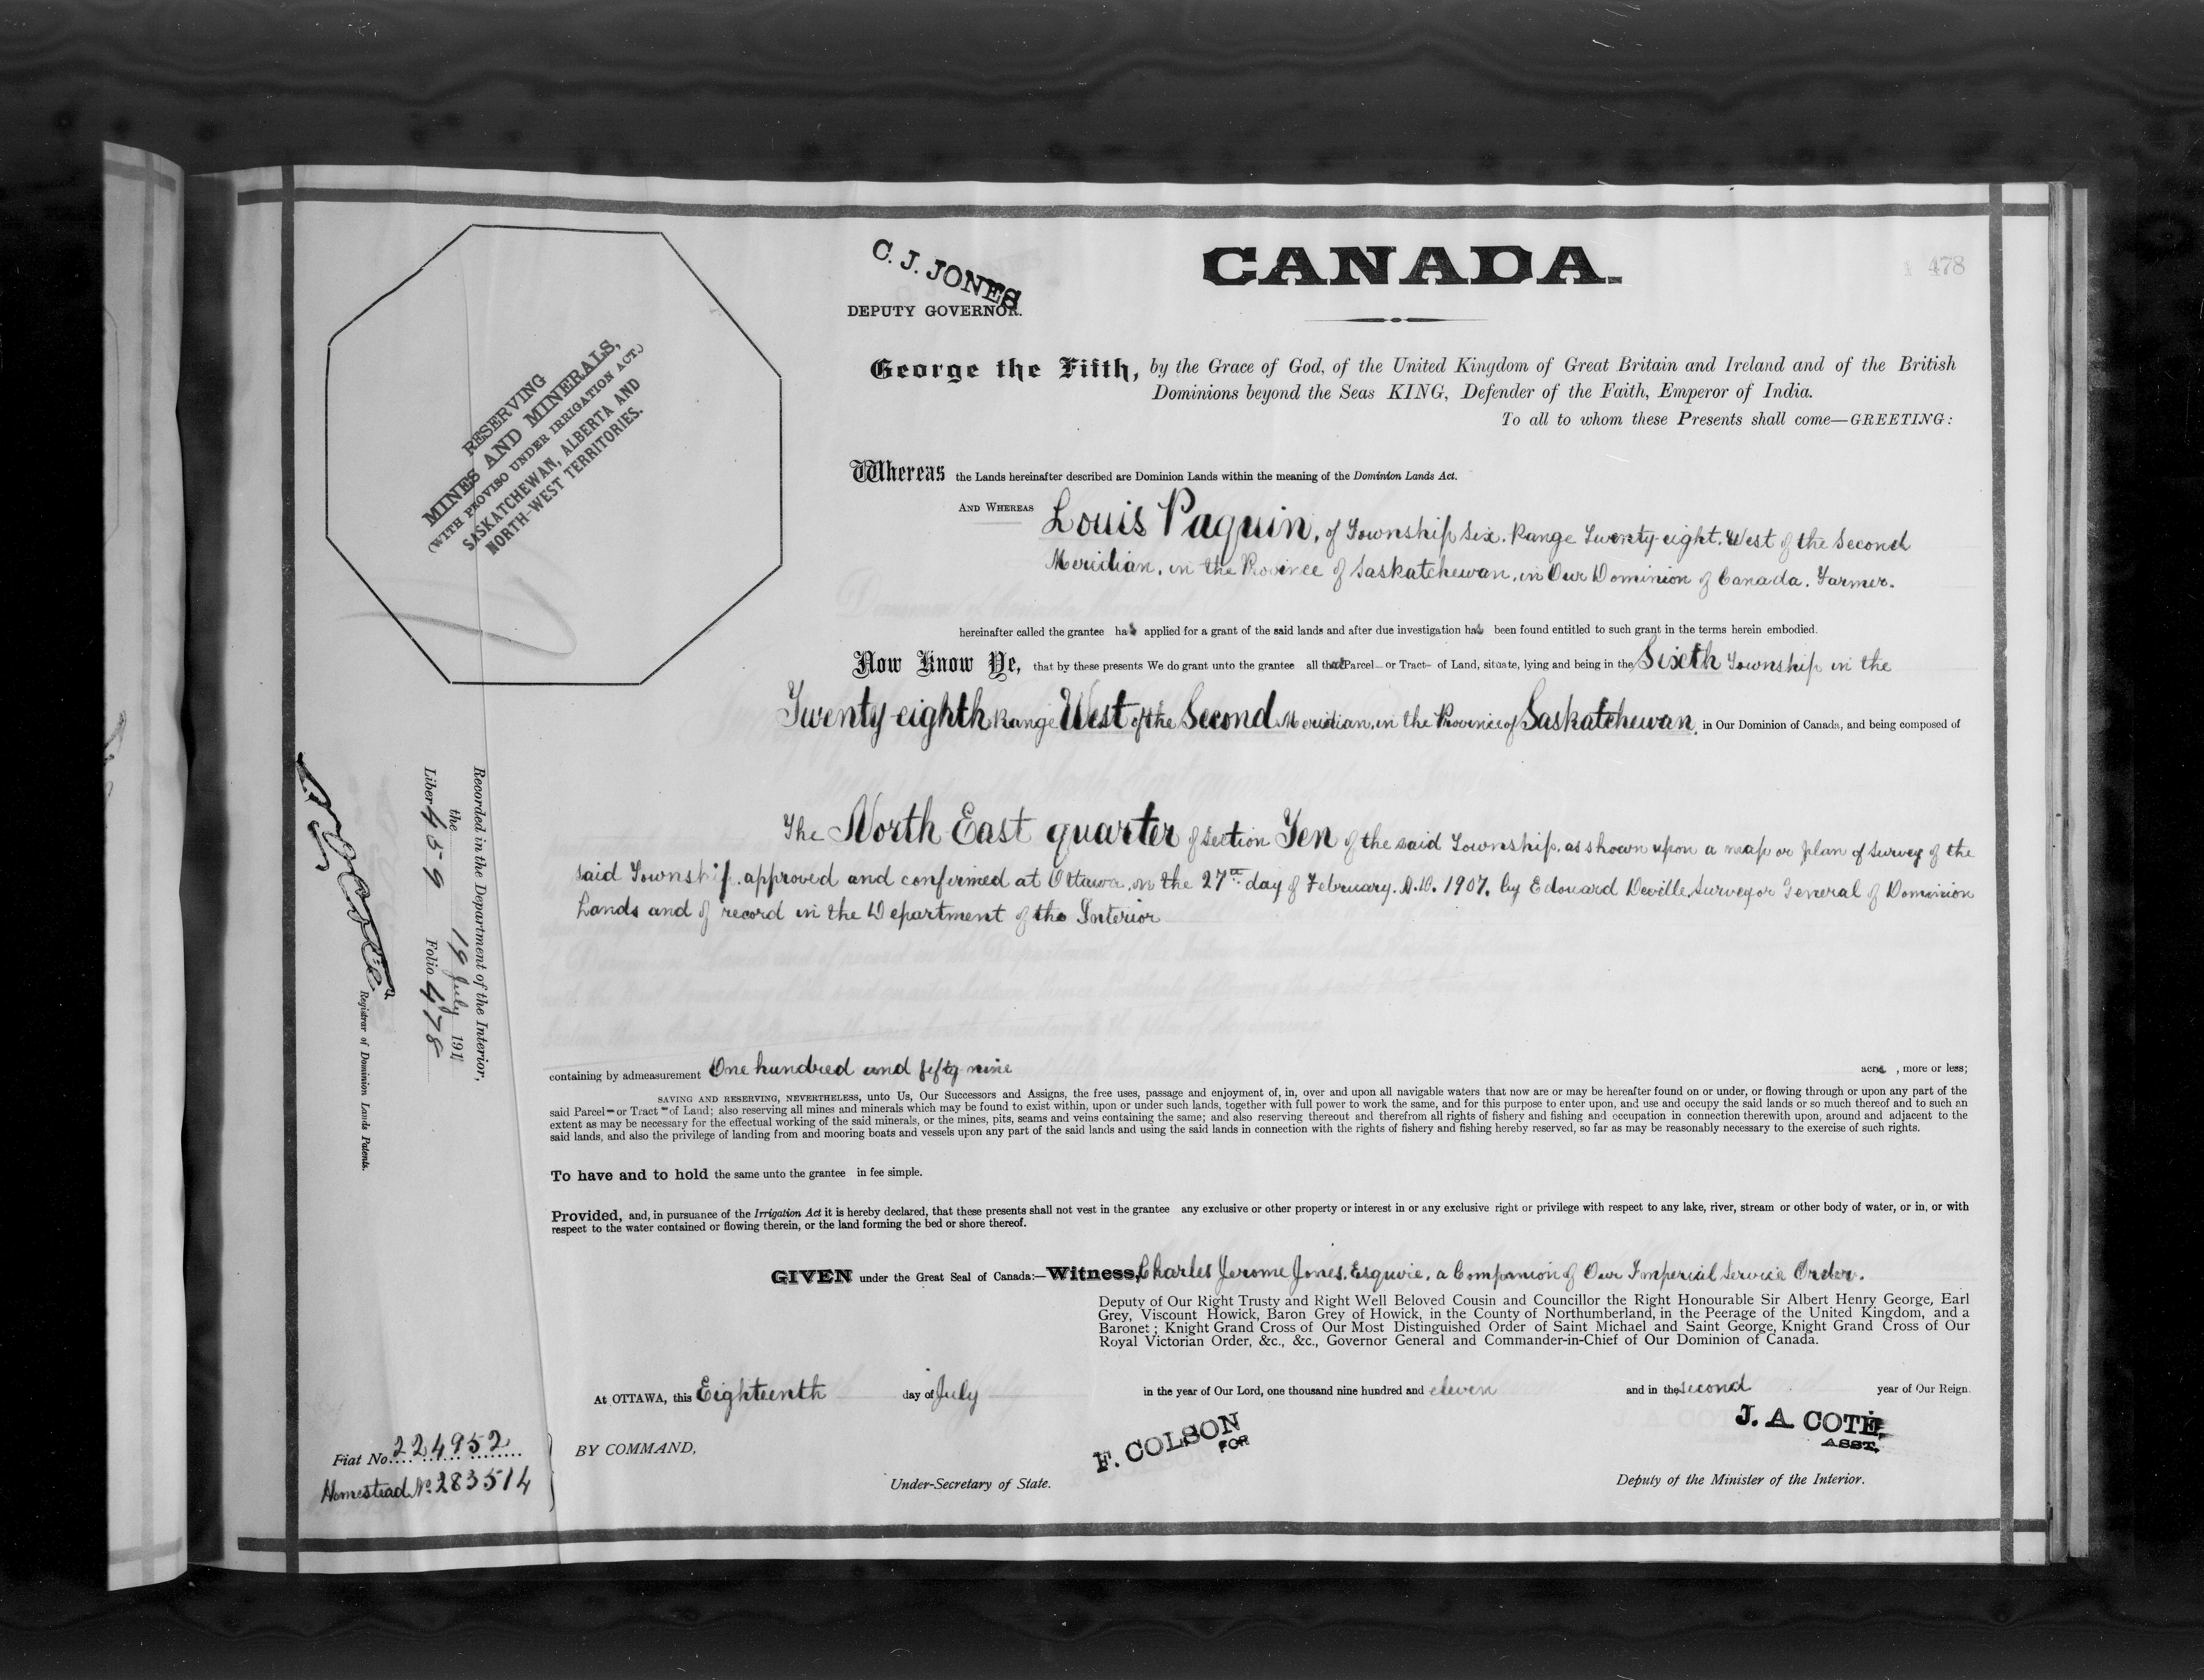 C. J. JONES
DEPUTY GOVERNOR.
CANADA.
478
RESERVING
MINES AND MINERALS,
(WITH PROVISO UNDER IRRIGATION ACT.)
SASKATCHEWAN, ALBERTA AND
NORTH-WEST TERRITORIES.
George the Fifth, by the Grace of God, of the United Kingdom of Great Britain and Ireland and of the British
Dominions beyond the Seas KING, Defender of the Faith, Emperor of India.
To all to whom these Presents shall come—GREETING:
Whereas the Lands hereinafter described are Dominion Lands within the meaning of the Dominion Lands Act.
AND WHEREAS Louis Paquin, of Township Six. Range Twenty-eight. West of the Second
Meridian, in the Province of Saskatchewan, in Our Dominion of Canada. Farmer.
hereinafter called the grantee has applied for a grant of the said lands and after due investigation has been found entitled to such grant in the terms herein embodied.
Now Know Ye, that by these presents We do grant unto the grantee all that Parcel or Tract of Land, situate, lying and being in the Sixth Township in the
Twenty-eighth Range West of the Second Meridian, in the Province of Saskatchewan, in Our Dominion of Canada, and being composed of
The North East quarter of section Ten of the said Township, as shown upon a map or plan of survey of the
said Township, approved and confirmed at Ottawa, on the 27th day of February. A.D. 1907, by Edouard Deville, Surveyor General of Dominion
Lands and of record in the Department of the Interior
containing by admeasurement One hundred and fifty nine acres, more or less;
SAVING AND RESERVING, NEVERTHELESS, unto Us, Our Successors and Assigns, the free uses, passage and enjoyment of, in, over and upon all navigable waters that now are or may be hereafter found on or under, or flowing through or upon any part of the
said Parcel or Tract of Land; also reserving all mines and minerals which may be found to exist within, upon or under such lands, together with full power to work the same, and for this purpose to enter upon, and use and occupy the said lands or so much thereof and to such an
extent as may be necessary for the effectual working of the said minerals, or the mines, pits, seams and veins containing the same; and also reserving thereout and therefrom all rights of fishery and fishing and occupation in connection therewith upon, around and adjacent to the
said lands, and also the privilege of landing from and mooring boats and vessels upon any part of the said lands and using the said lands in connection with the rights of fishery and fishing hereby reserved, so far as may be reasonably necessary to the exercise of such rights.
To have and to hold the same unto the grantee in fee simple.
Provided, and, in pursuance of the Irrigation Act it is hereby declared, that these presents shall not vest in the grantee any exclusive or other property or interest in or any exclusive right or privilege with respect to any lake, river, stream or other body of water, or in, or with
respect to the water contained or flowing therein, or the land forming the bed or shore thereof.
GIVEN under the Great Seal of Canada:—Witness, Charles Jerome Jones, Esquire, a Companion of Our Imperial Service Order.
Deputy of Our Right Trusty and Right Well Beloved Cousin and Councillor the Right Honourable Sir Albert Henry George, Earl
Grey, Viscount Howick, Baron Grey of Howick, in the County of Northumberland, in the Peerage of the United Kingdom, and a
Baronet; Knight Grand Cross of Our Most Distinguished Order of Saint Michael and Saint George, Knight Grand Cross of Our
Royal Victorian Order, &c., &c., Governor General and Commander-in-Chief of Our Dominion of Canada.
At OTTAWA, this Eighteenth day of July in the year of Our Lord, one thousand nine hundred and eleven and in the second year of Our Reign.
BY COMMAND,
F. COLSON
FOR
Under-Secretary of State.
J. A. COTÉ,
ASST.
Deputy of the Minister of the Interior.
Recorded in the Department of the Interior,
the 19 July 1911
Liber 459 Folio 478
Registrar of Dominion Lands Patents.
Fiat No. 224952
Homestead No 283514